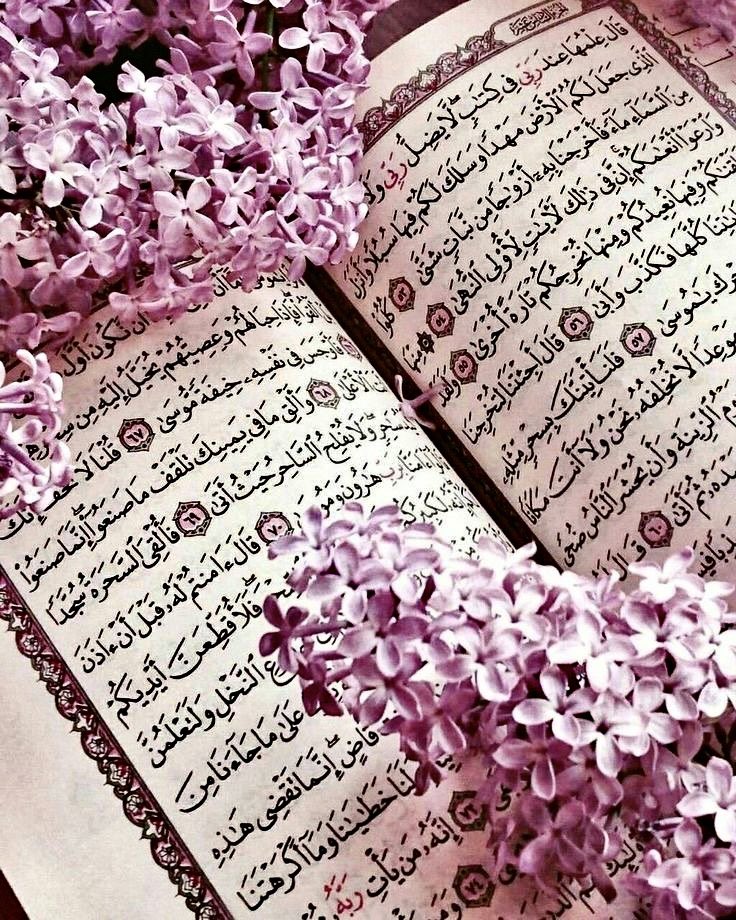 قَالَ عِلْمُهَا عِندَ رَبِّى فِى كِتَٰبٍ لَّا يَضِلُّ رَبِّى
ٱلَّذِى جَعَلَ لَكُمُ ٱلْأَرْضَ مَهْدًا وَسَلَكَ لَكُمْ فِيهَا سُبُلًا وَأَنزَلَ
مِنَ ٱلسَّمَآءِ مَآءً فَأَخْرَجْنَا بِهِۦٓ أَزْوَٰجًا مِّن نَّبَاتٍ شَتَّىٰ ٥٣ كُلُوا۟
وَٱرْعَوْا۟ أَنْعَٰمَكُمْ إِنَّ فِى ذَٰلِكَ لَءَايَٰتٍ لِّأُو۟لِى ٱلنُّهَىٰ ٥٤ مِنْهَا
وَفِيهَا نُعِيدُكُمْ وَمِنْهَا نُخْرِجُكُمْ تَارَةً أُخْرَىٰ ٥٥ وَلَقَدْ
كُلَّهَا فَكَذَّبَ وَأَبَىٰ ٥٦ قَالَ أَجِئْتَنَا لِتُخْرِجَنَا
يَٰمُوسَىٰ ٥٧ فَلَنَأْتِيَنَّكَ بِسِحْرٍ مِّثْلِهِۦ
لَّا نُخْلِفُهُۥ نَحْنُ وَلَآ أَنتَ مَكَانًا
ٱلزِّينَةِ وَأَن يُحْشَرَ ٱلنَّاسُ ضُحًى
ثُمَّ أَتَىٰ ٦٠ قَالَ
أَن نَّكُونَ أَوَّلَ
أَلْقُوا۟ فَإِذَا حِبَالُهُمْ وَعِصِيُّهُمْ يُخَيَّلُ إِلَيْهِ مِن
فَأَوْجَسَ فِى نَفْسِهِۦ خِيفَةً مُّوسَىٰ ٦٧ قُلْنَا لَا تَخَفْ إِنَّكَ
ٱلْأَعْلَىٰ ٦٨ وَأَلْقِ مَا فِى يَمِينِكَ تَلْقَفْ مَا صَنَعُوٓا۟ إِنَّمَا صَنَعُوا۟
وَلَا يُفْلِحُ ٱلسَّاحِرُ حَيْثُ أَتَىٰ ٦٩ فَأُلْقِىَ ٱلسَّحَرَةُ سُجَّدًا
ءَامَنَّا بِرَبِّ هَٰرُونَ وَمُوسَىٰ ٧٠ قَالَ ءَامَنتُمْ لَهُۥ قَبْلَ أَنْ ءَاذَنَ
إِنَّهُۥ لَكَبِيرُكُمُ فَلَأُقَطِّعَنَّ أَيْدِيَكُمْ
ٱلنَّخْلِ وَلَتَعْلَمُنَّ
عَلَىٰ مَا جَآءَنَا مِنَ
قَاضٍ إِنَّمَا تَقْضِى هَٰذِهِ
لَنَا خَطَٰيَٰنَا وَمَآ أَكْرَهْتَنَا
٧٣ إِنَّهُۥ مَن يَأْتِ رَبَّهُۥ
٧٤